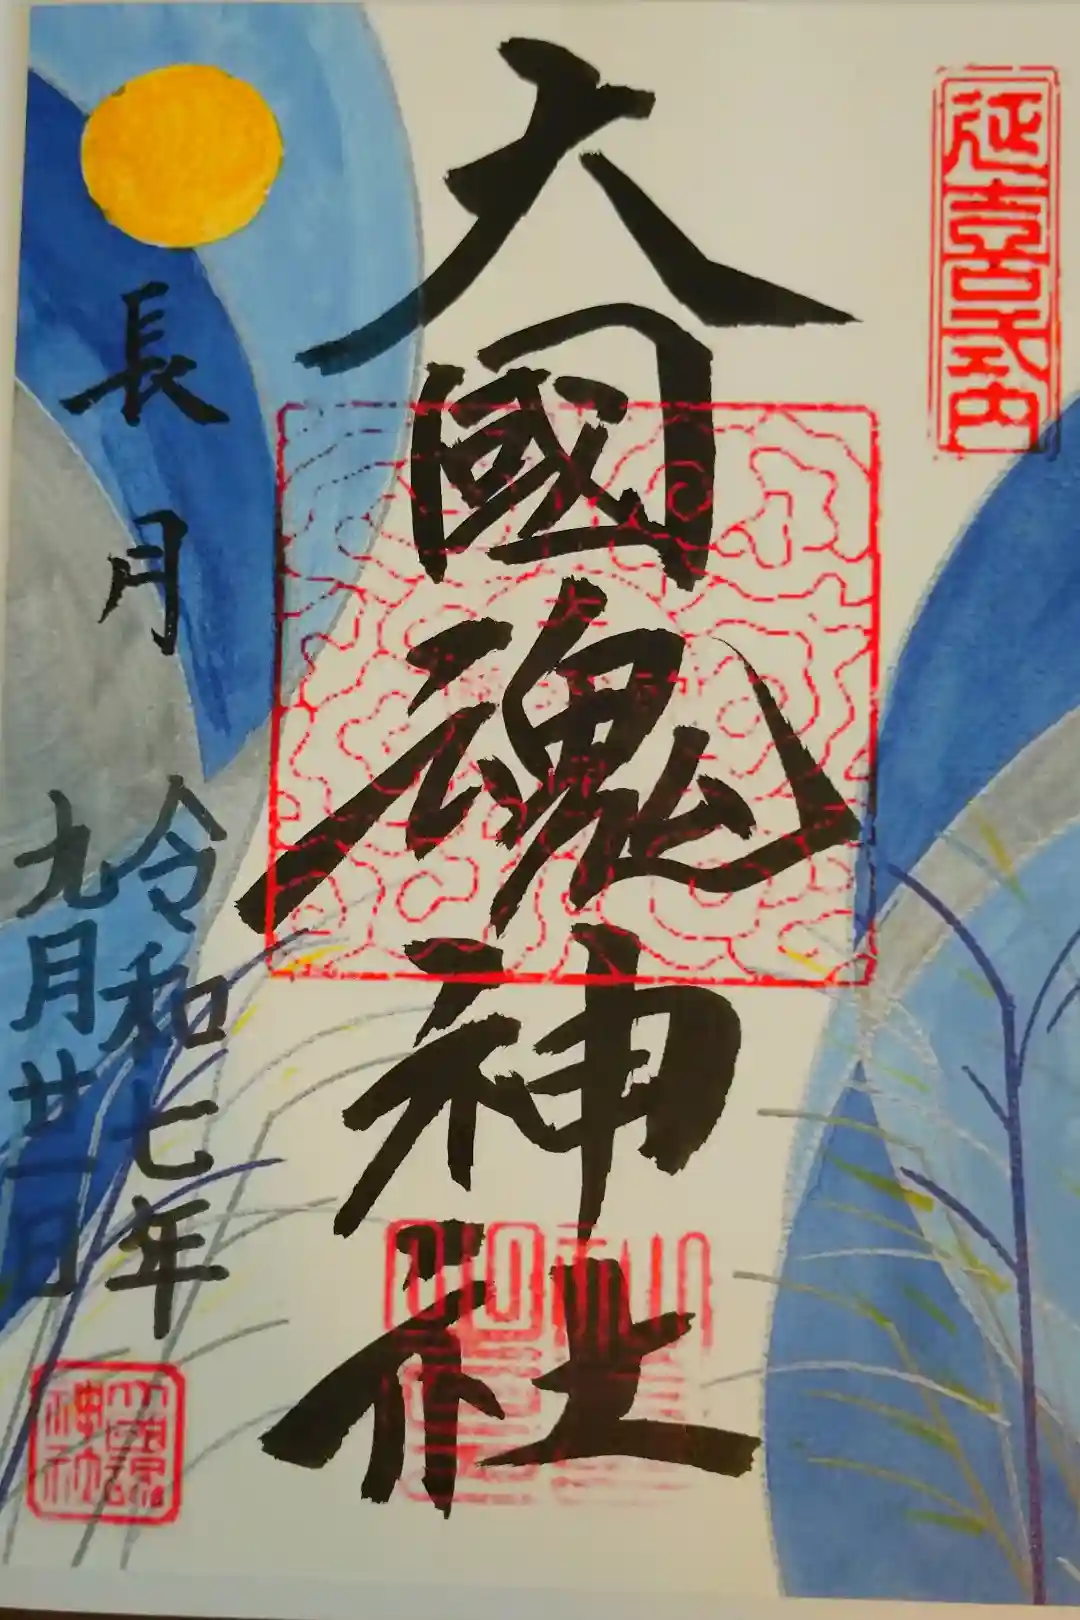 延喜式内
大國魂神社
長月
令和七年
九月廿一日